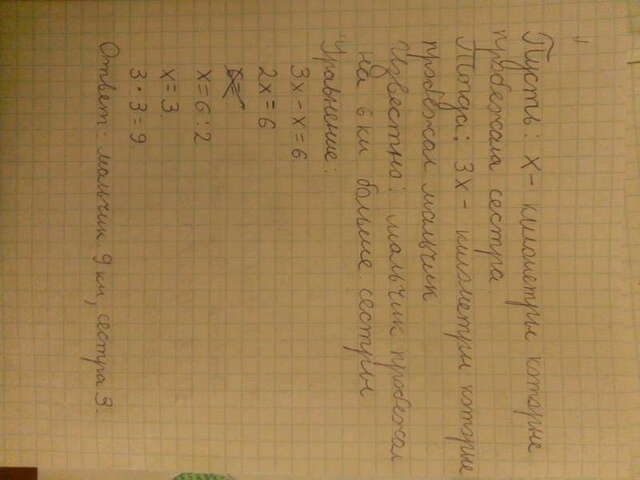 Пусть: х - километры которые
пробежала сестра
Тогда: 3х - километры которые
пробежал мальчик
Известно: мальчик пробежал
на 6 км больше сестры
Уравнение:
3х - х = 6
2х = 6
х = 6 : 2
х = 3.
3 · 3 = 9
Ответ: мальчик 9 км, сестра 3.